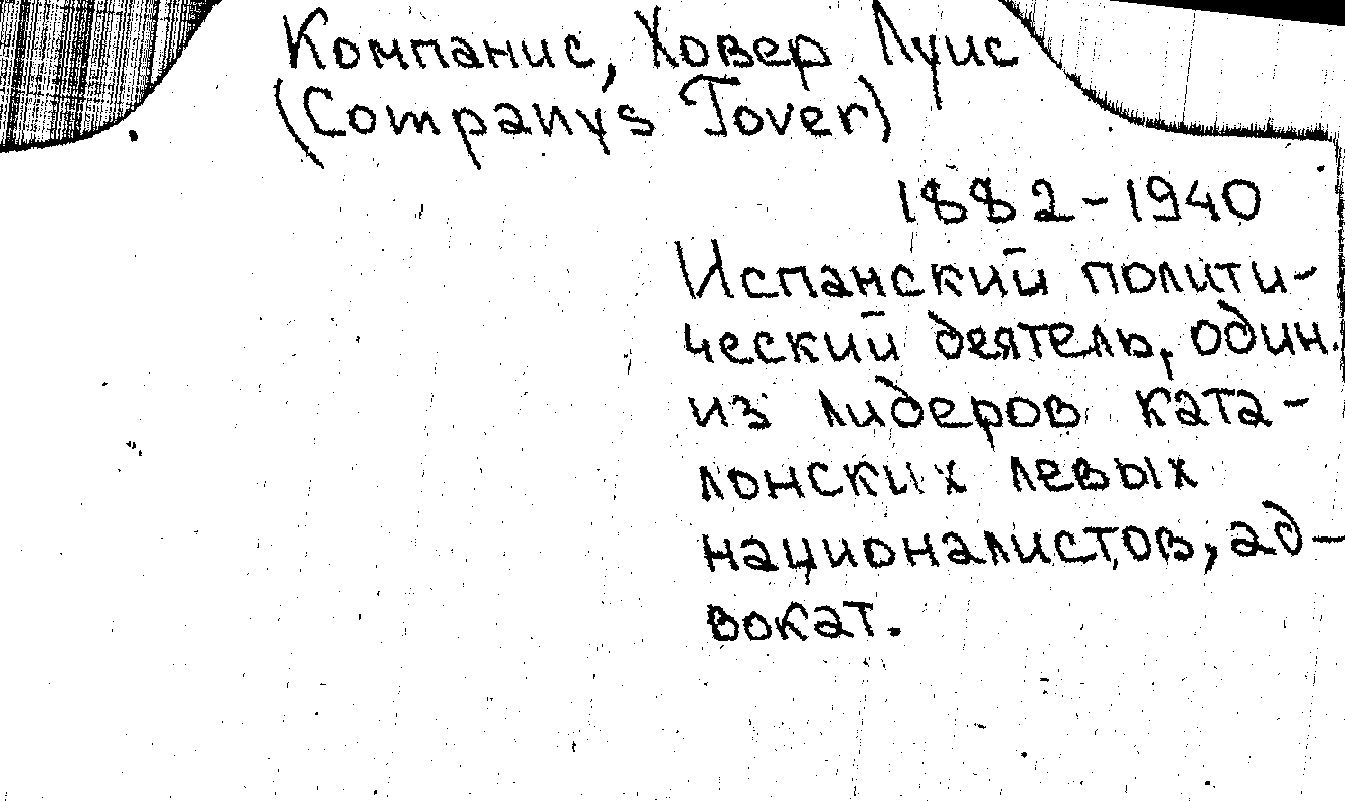 Компанис, Ховер Луис
(Companys Jover)
1882-1940
Испанский полити-
ческий деятель, один
из лидеров ката-
лонских левых
националистов, ад-
вокат.